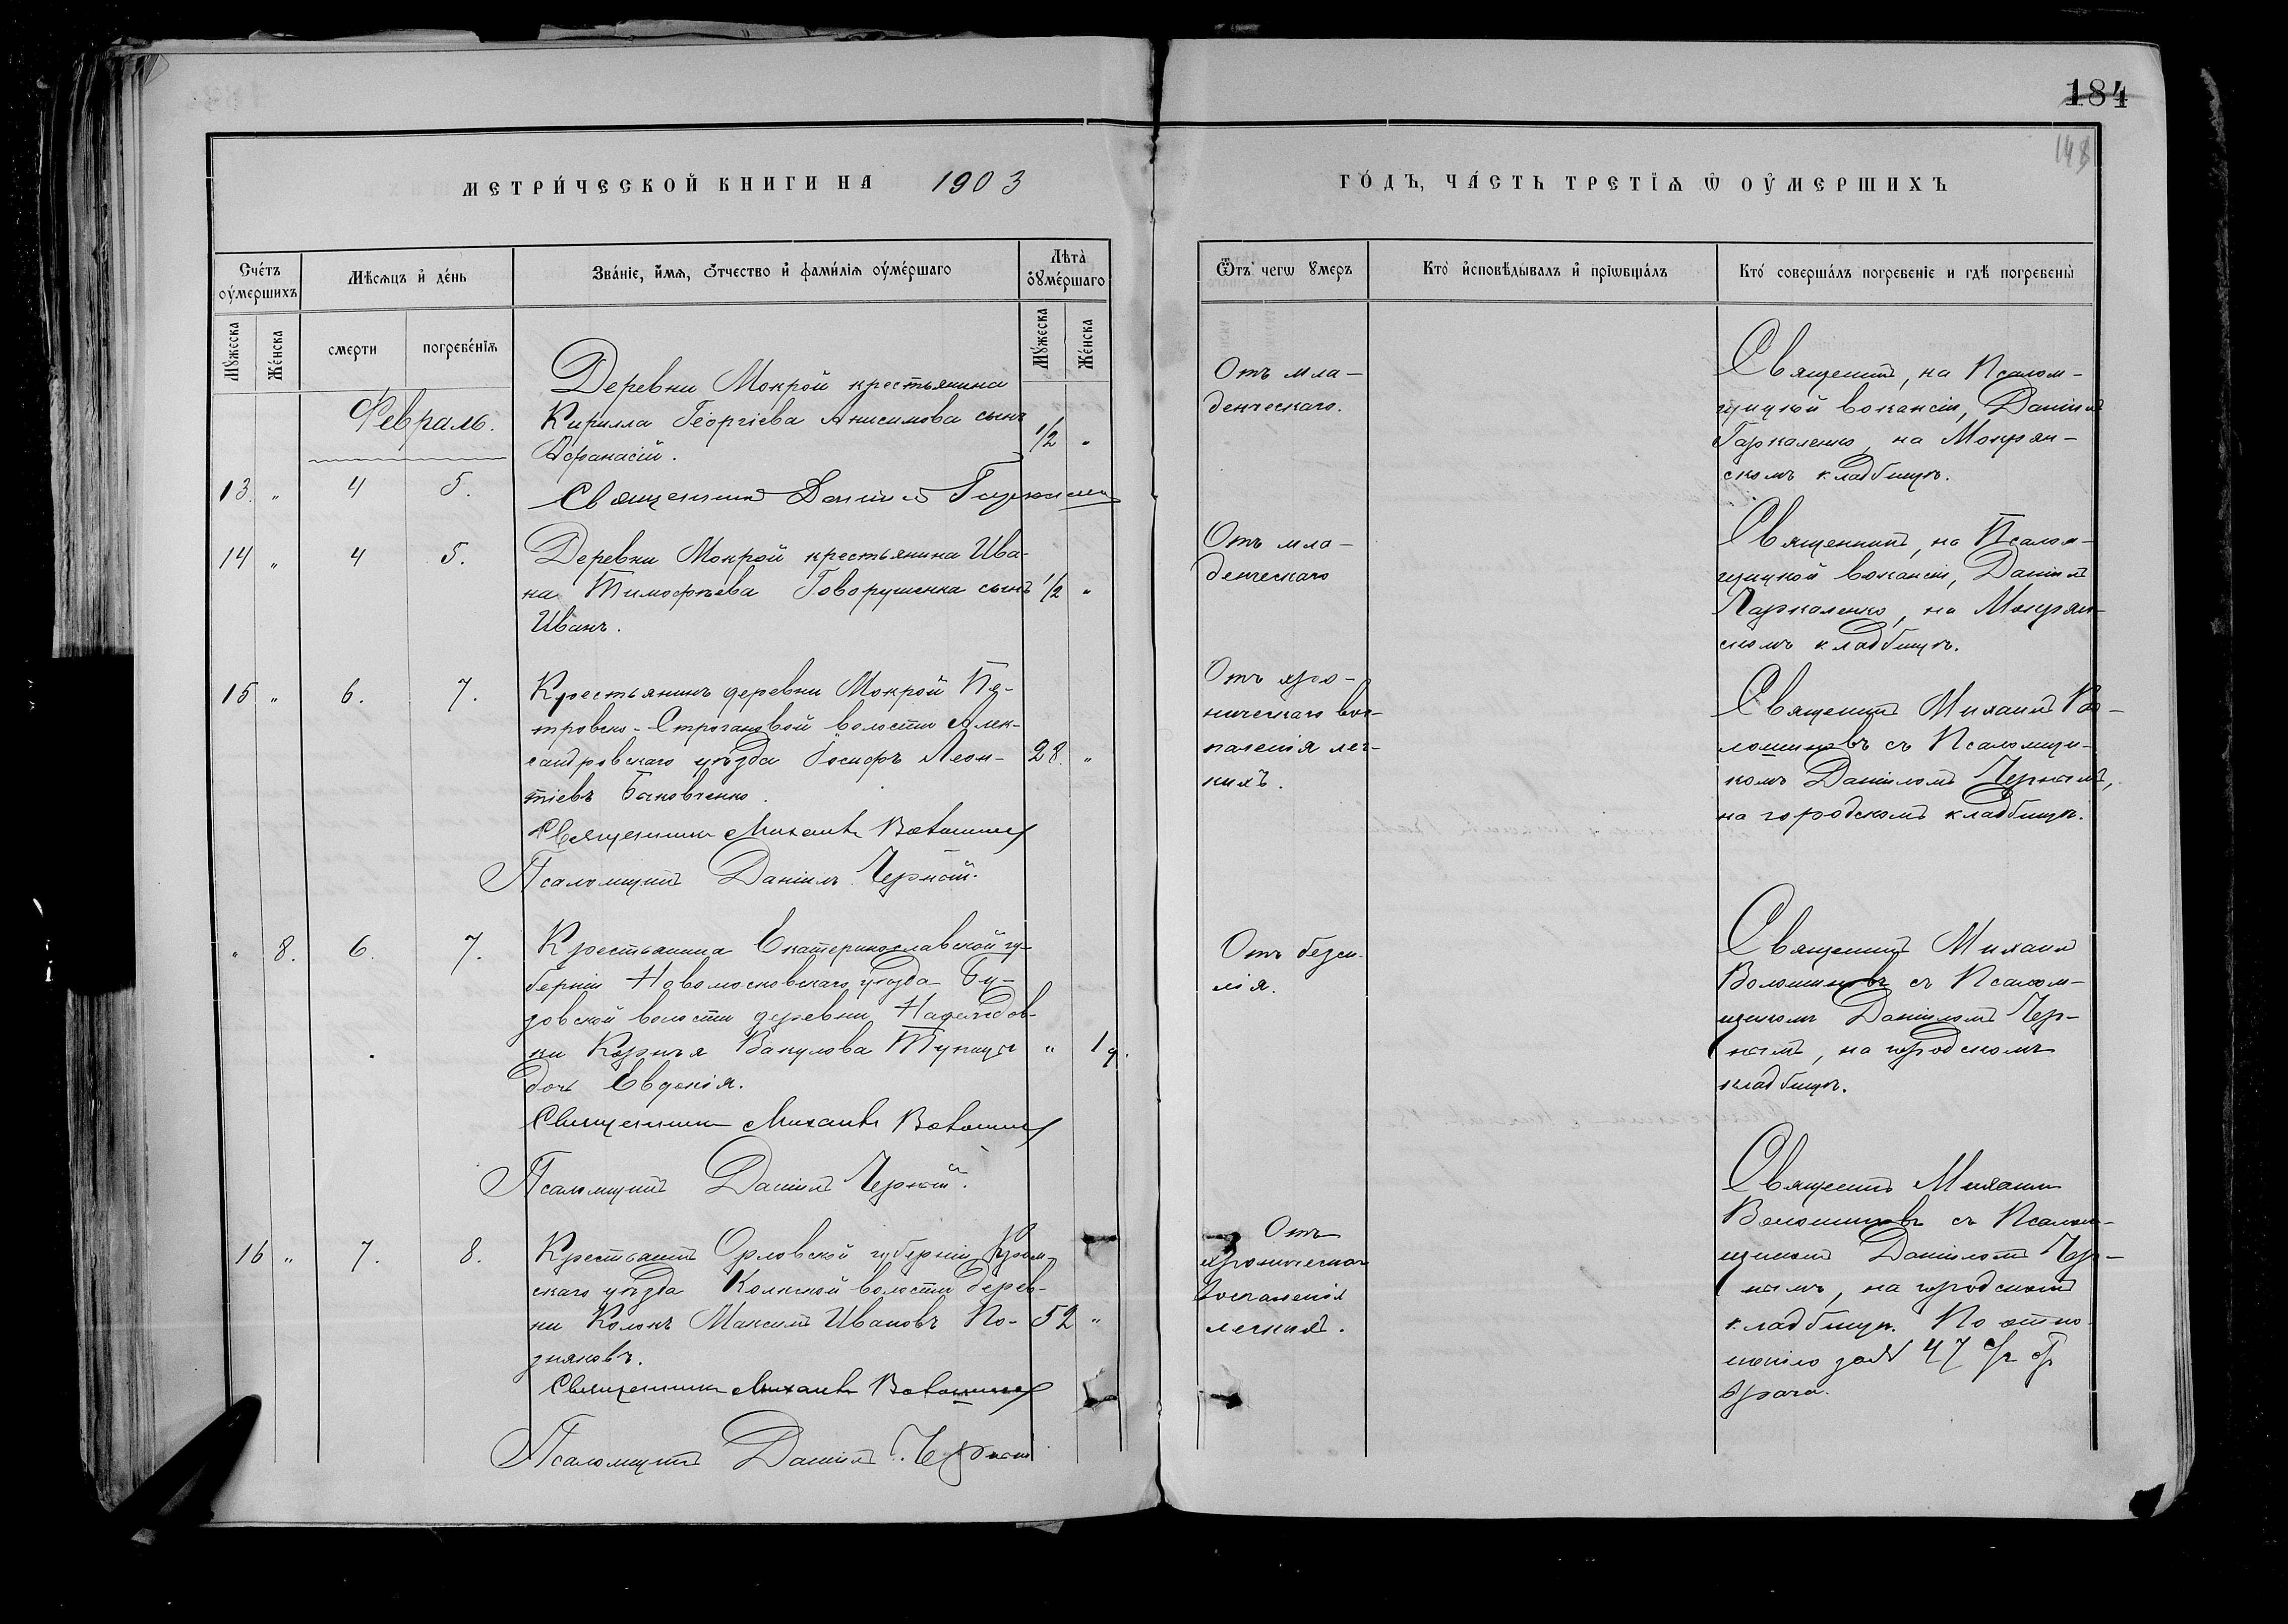 184
148
МЕТРИ́ЧЕСКОЙ КНИГИ НА 1903
ГО́ДЪ, ЧА́СТЬ ТРЕТІѦ Ѿ ОУ҆МЕРШИХЪ
Сче́тъ оу҆ме́ршихъ
Мѣсѧцъ и҆ де́нь
Зва́нїе, и҆́мѧ, ѻ҆́тчество и҆ фами́лїѧ оу҆ме́ршаго
Лѣта̀ оу҆ме́ршаго
Ѿъ чегѡ ᲂумеръ
Кто̀ и҆сповѣ́дывалъ и҆ прїѡбща́лъ
Кто́ соверша́лъ погребенїе и гдѣ̀ погребены̀
Мꙋ́жеска
Же́нска
смерти
погребе́нїѧ
Мꙋ́жеска
Же́нска
Февраль.
13. " 4 5.
Деревни Мокрой крестьянина
Кирилла Георгіева Анисимова сынъ
Афанасій.
1/2 "
Священникъ Даніилъ Гаркаленко
Отъ мла-
денческаго.
Священникъ, на Псалом-
щицкой вакансіи, Даніилъ
Гаркаленко, на Мокрян-
скомъ кладбищѣ.
14 " 4 5.
Деревни Мокрой крестьянина Ива-
на Тимофѣева Говорушенка сынъ
Иванъ.
1/2 "
Отъ мла-
денческаго
Священникъ, на Псалом-
щицкой вакансіи, Даніилъ
Гаркаленко, на Мокрян-
скомъ кладбищѣ.
15 " 6. 7.
Крестьянинъ деревни Мокрой Пе-
тровско-Строгановой волости Алек-
сандровскаго уѣзда Іосифъ Леон-
тіевъ Быковченко.
28. "
Священникъ Михаилъ Волошиновъ
Псаломщикъ Даніилъ Черный.
Отъ хро-
ническаго вос-
паленія лег-
кихъ.
Священникъ Михаилъ Во-
лошиновъ съ Псаломщи-
комъ Даніиломъ Чернымъ,
на городскомъ кладбищѣ.
" 8. 6. 7.
Крестьянина Екатеринославской гу-
берніи Новомосковскаго уѣзда Бу-
зовской волости деревни Надеждов-
ки Корнѣя Вакулова
дочь Евдокія.
" 1 ч.
Священникъ Михаилъ Волошиновъ
Псаломщикъ Даніилъ Черный.
Отъ безси-
лія.
Священникъ Михаилъ
Волошиновъ съ Псалом-
щикомъ Даніиломъ Чер-
нымъ, на городскомъ
кладбищѣ.
16 " 7. 8.
Крестьянинъ Орловской губерніи
скаго уѣзда волости дерев-
ни Максимъ Ивановъ По-
зняковъ.
52 "
Священникъ Михаилъ Волошиновъ
Псаломщикъ Даніилъ Черный
Отъ
хроническаго
воспаленія
легкихъ.
Священникъ Михаилъ
Волошиновъ съ Псалом-
щикомъ Даніиломъ Чер-
нымъ, на городскомъ
кладбищѣ. По отно-
шенію за № 47
врача.